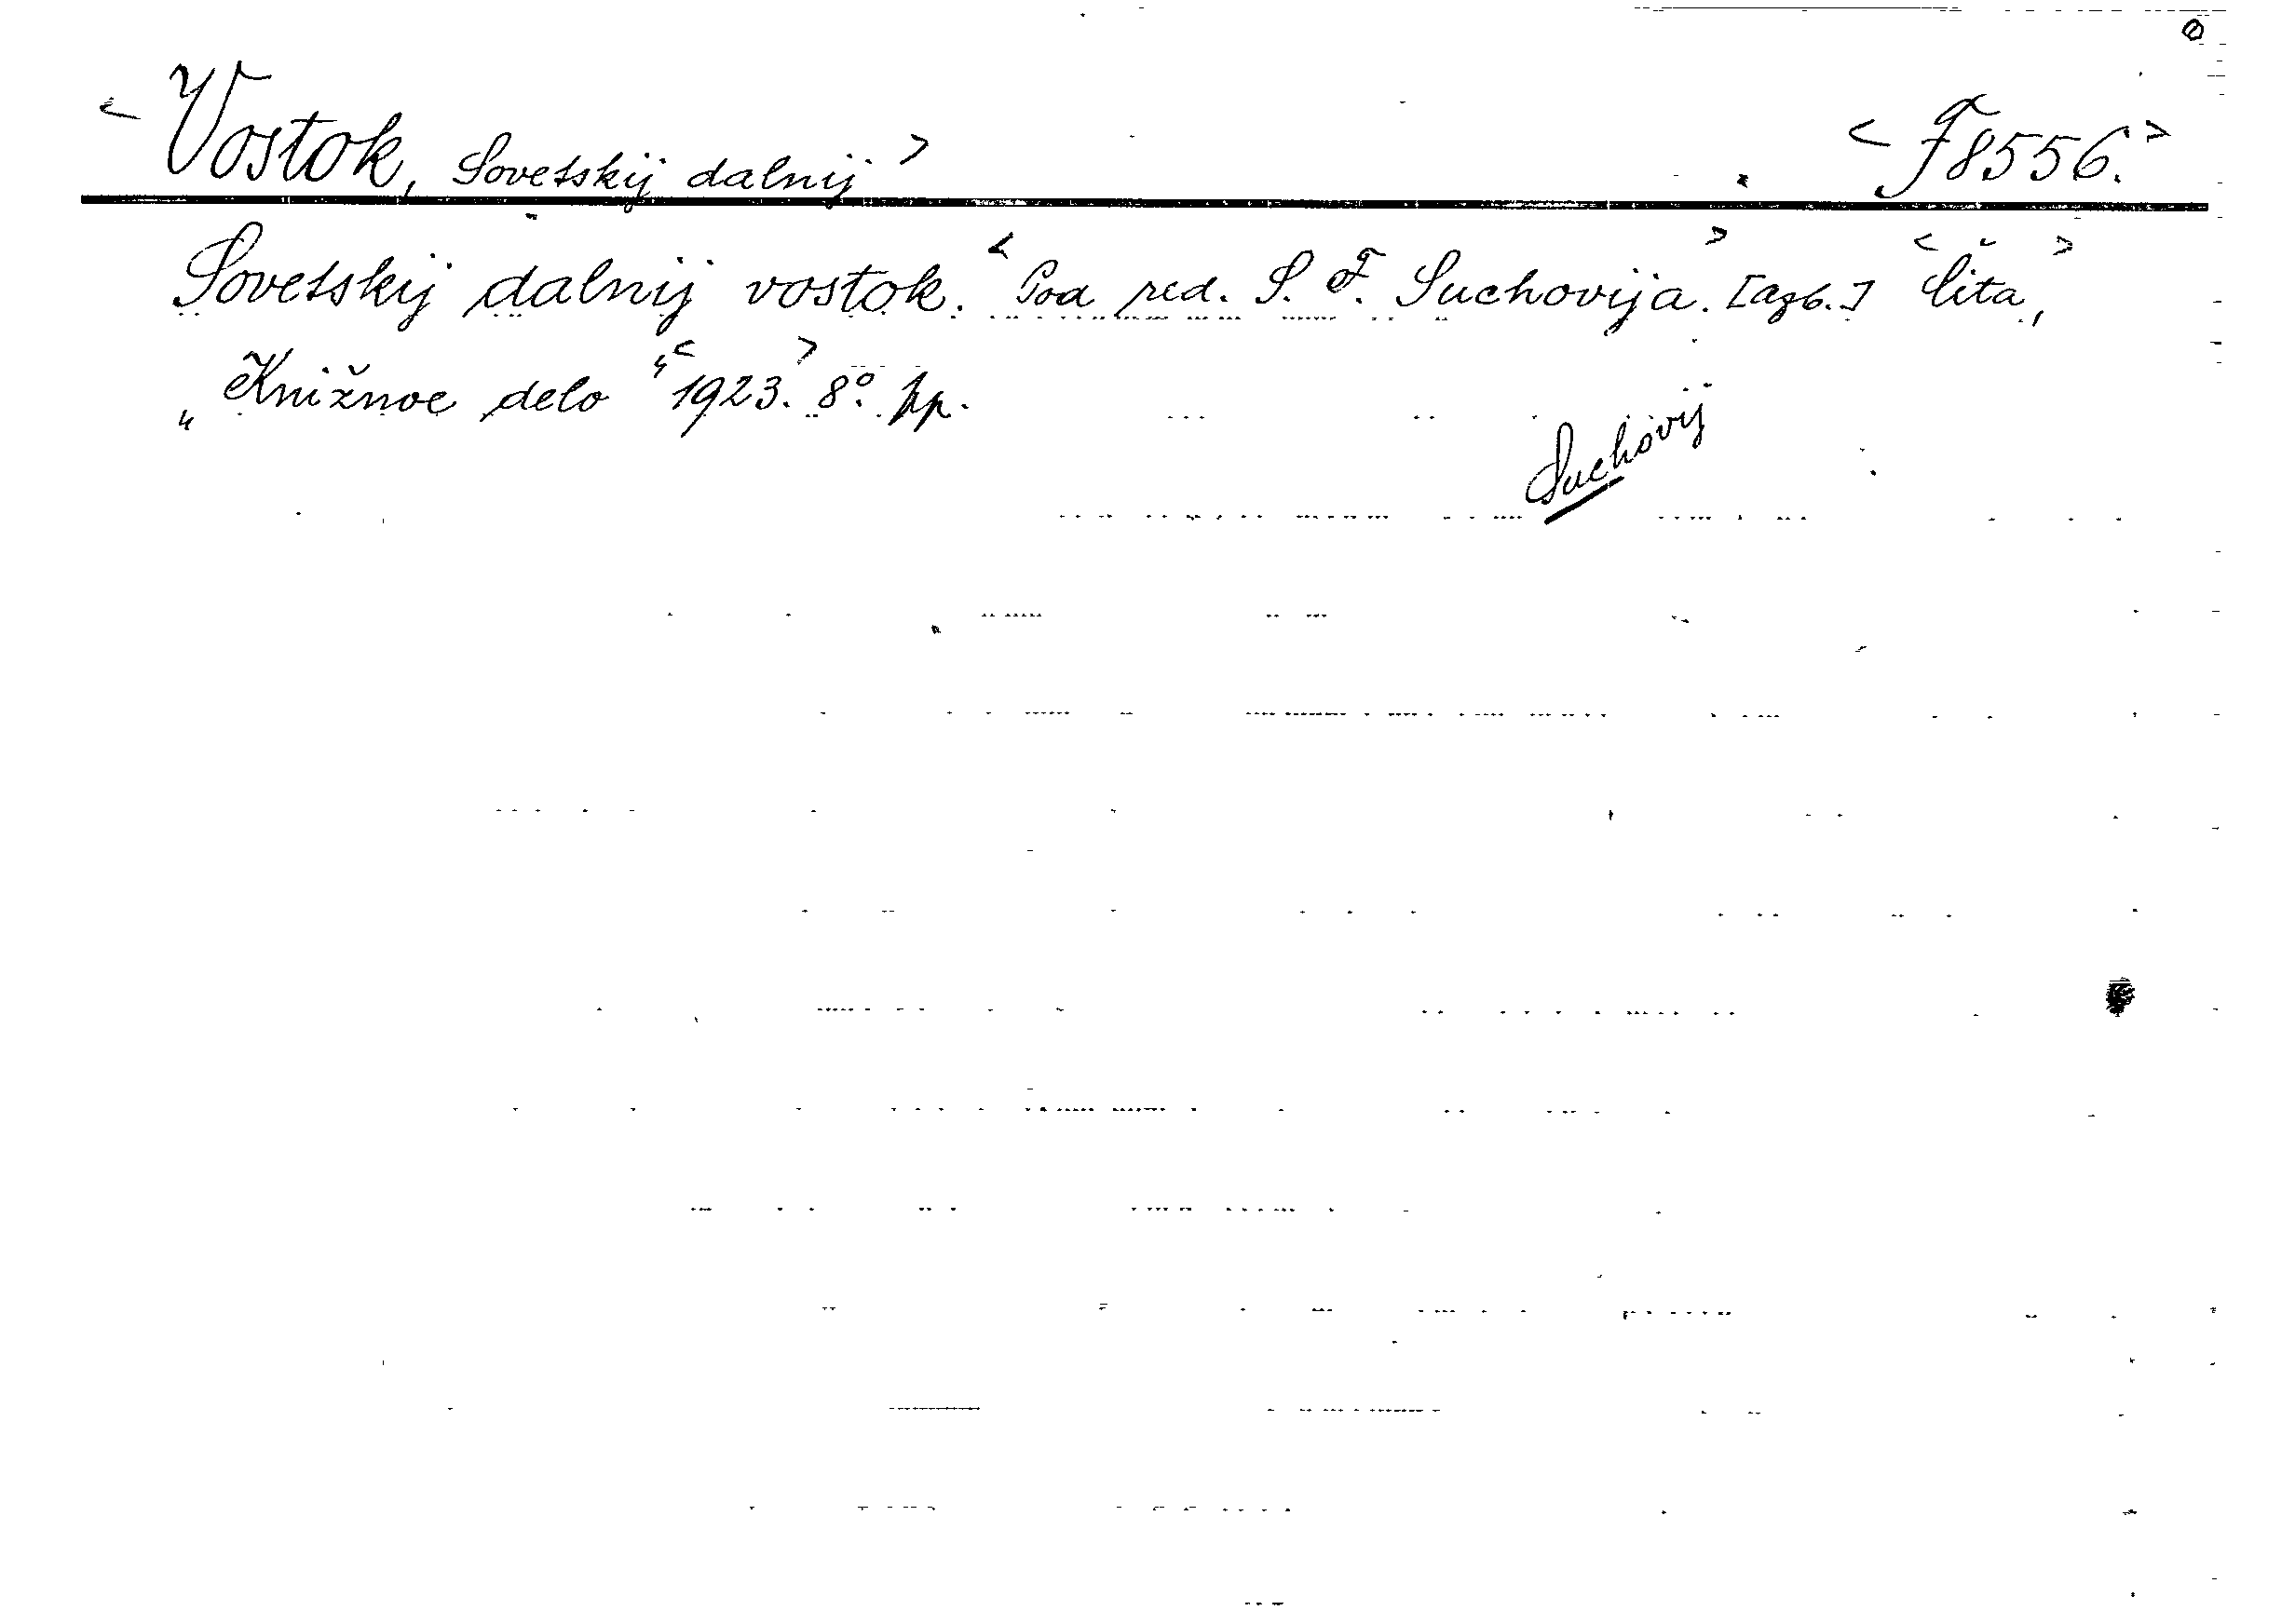 < Vostok, Sovetskij dalnij > < F8556. >
Sovetskij dalnij vostok. < Pod red. S. F. Suchovija. > [azb.] < Čita, >
„Knižnoe delo“ < 1923. > 8° pp.
Suchovij